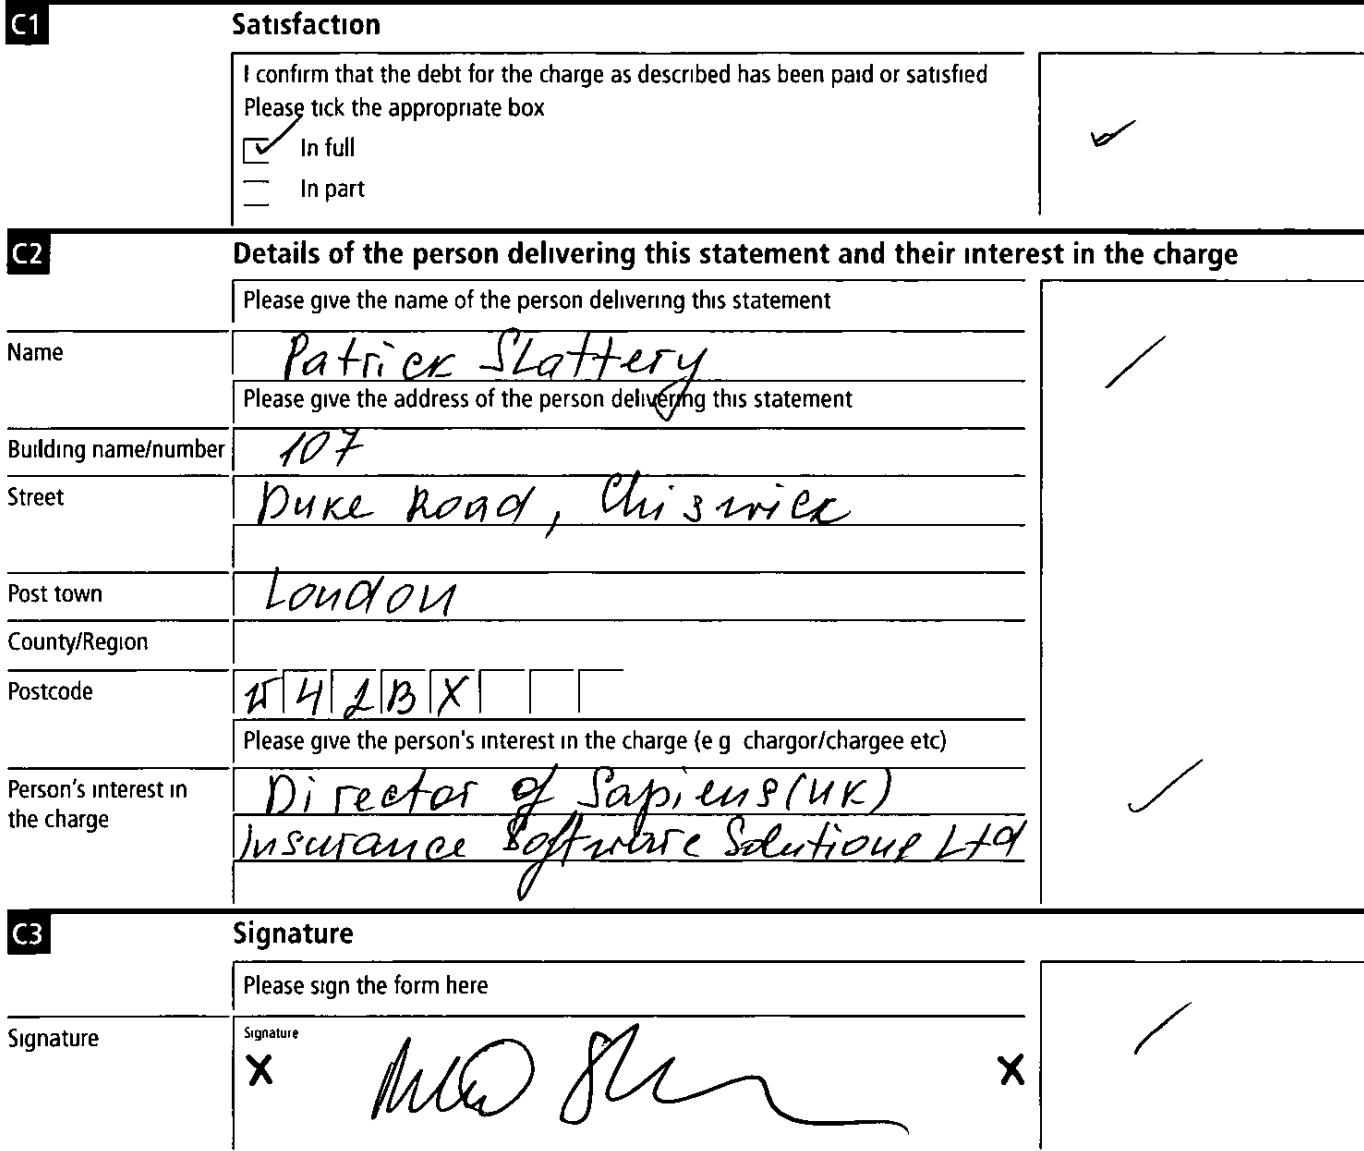 C1 Satisfaction
I confirm that the debt for the charge as described has been paid or satisfied
Please tick the appropriate box
In full
In part
C2 Details of the person delivering this statement and their interest in the charge
Please give the name of the person delivering this statement
Name Patrick Slattery
Please give the address of the person delivering this statement
Building name/number 107
Street Duke Road, Chiswick
Post town London
County/Region
Postcode W4 2BX
Please give the person's interest in the charge (e g chargor/chargee etc)
Person's interest in Director of Sapiens (UK)
the charge Insurance Software Solutions Ltd
C3 Signature
Please sign the form here
Signature Signature
X X